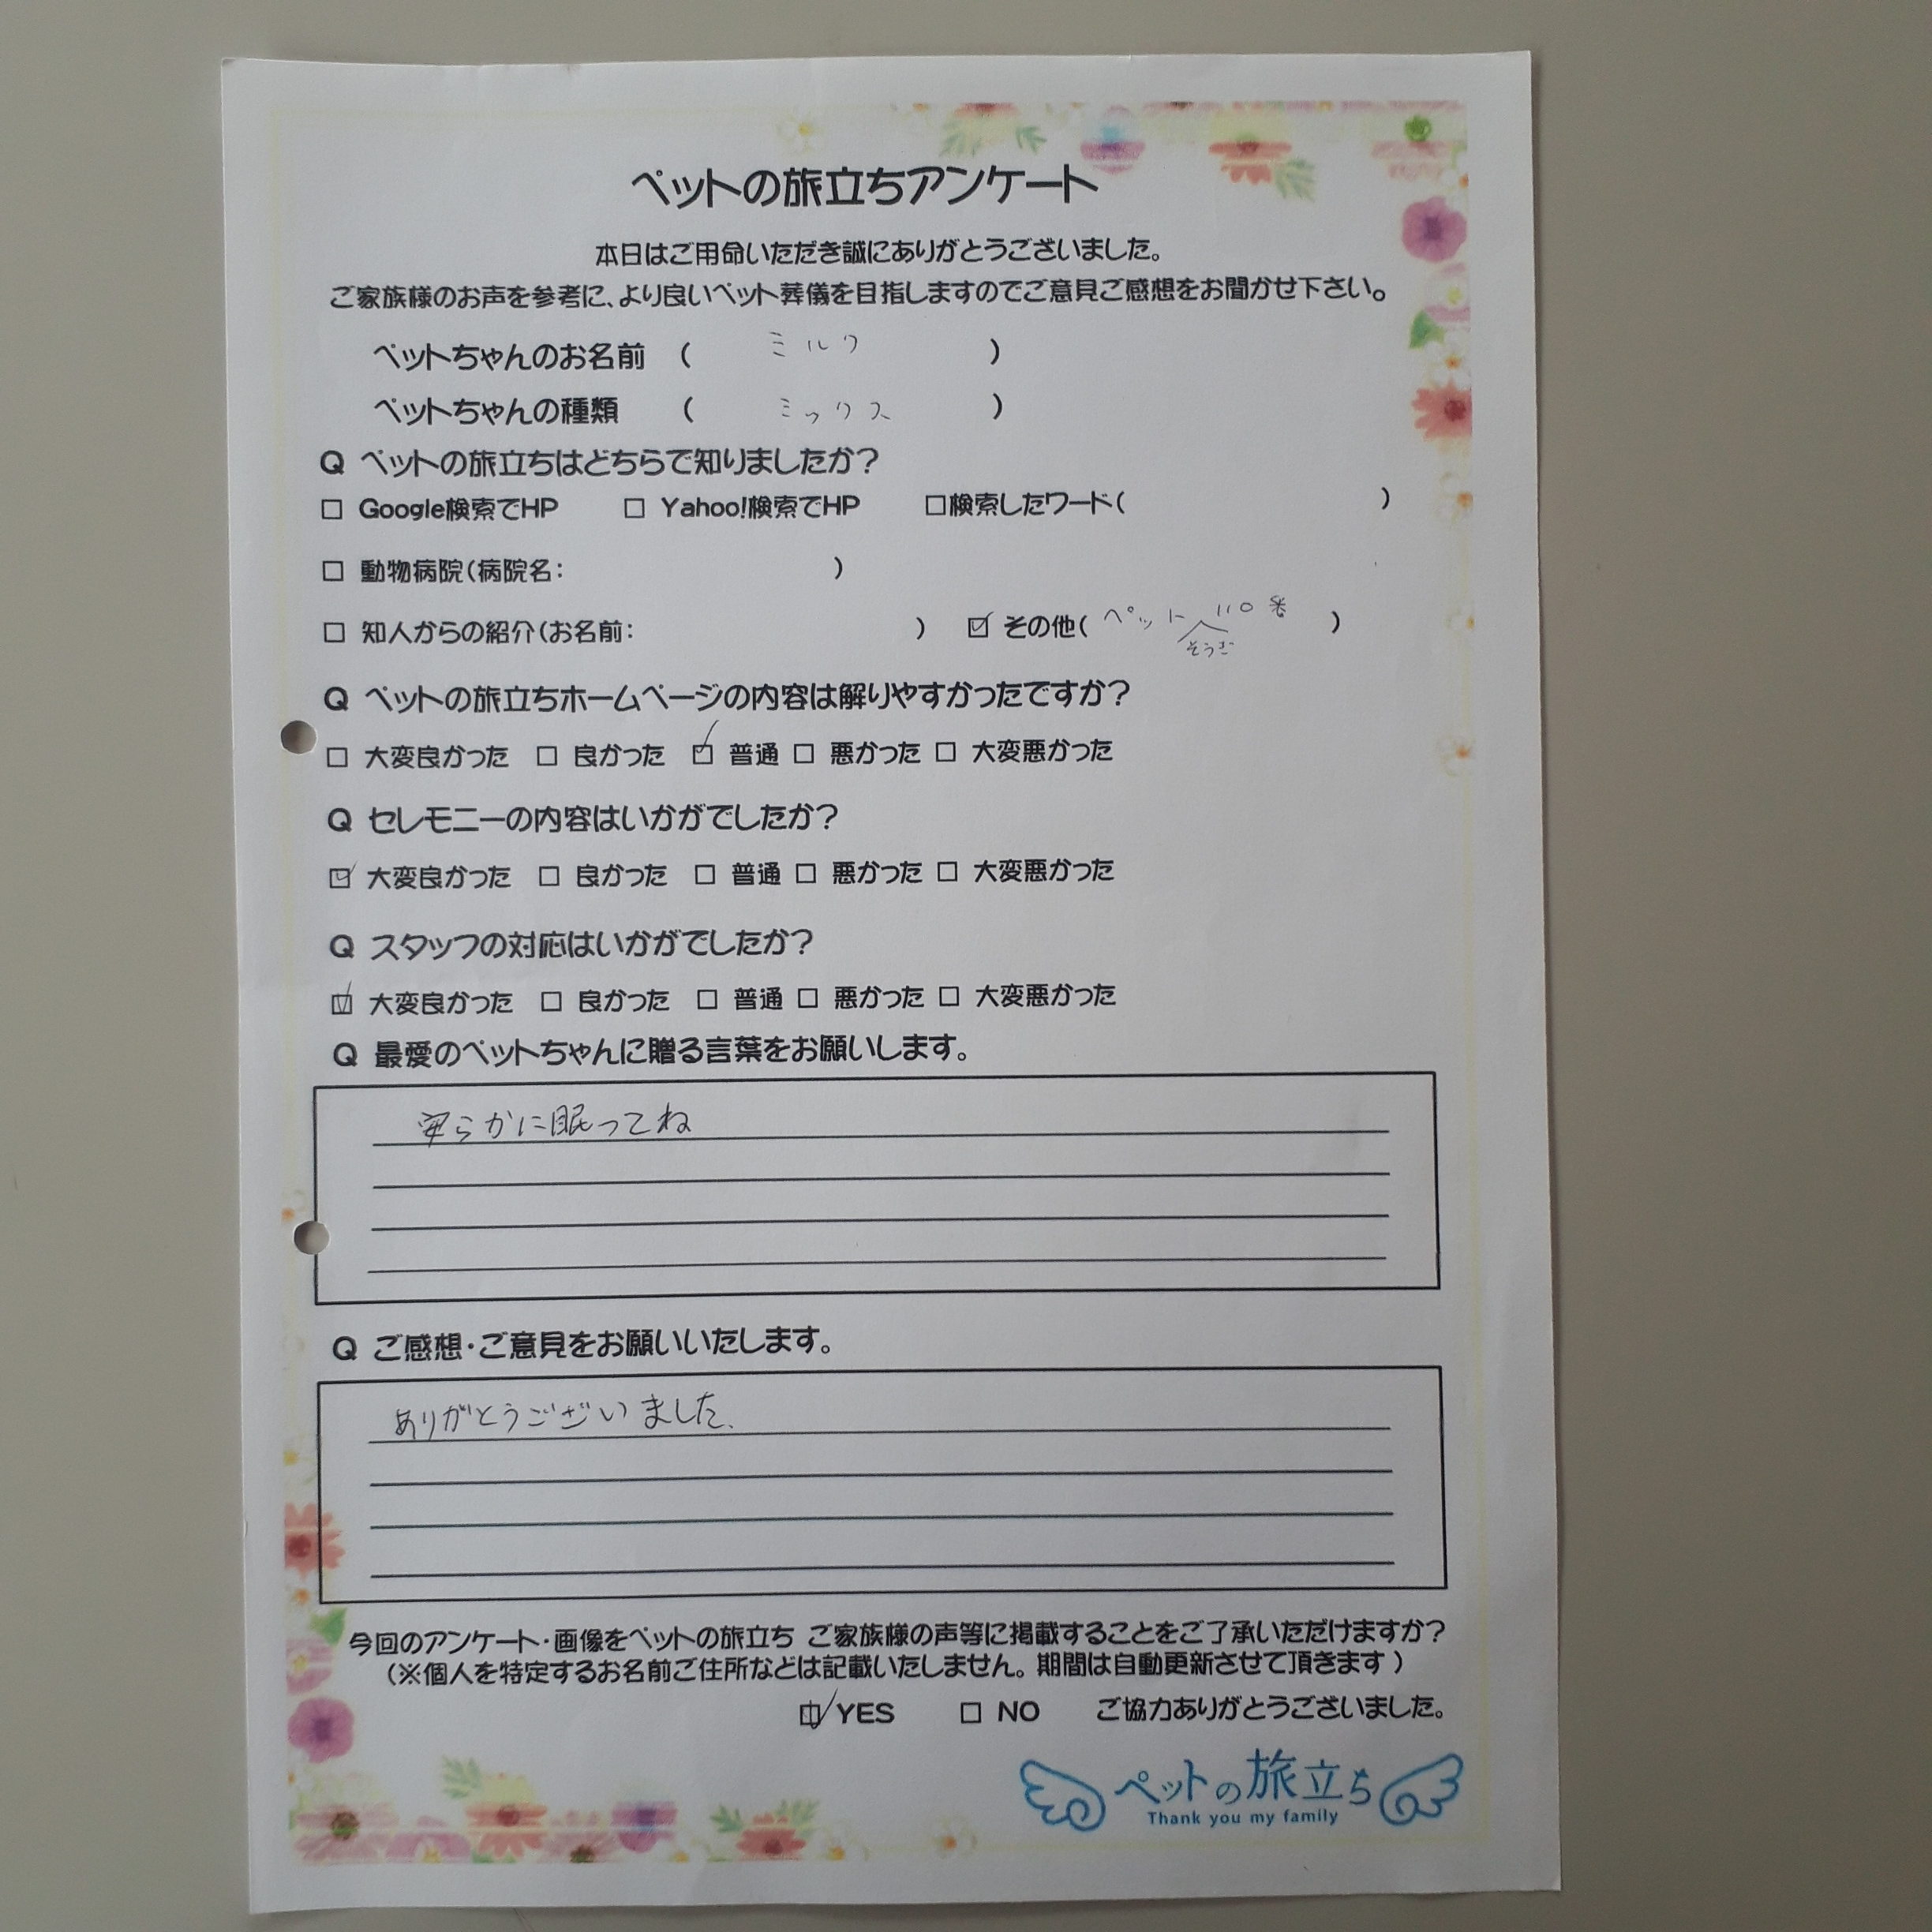 ペットの旅立ちアンケート
本日はご用命いただき誠にありがとうございました。
ご家族様のお声を参考に、より良いペット葬儀を目指しますのでご意見ご感想をお聞かせ下さい。
ペットちゃんのお名前 ( ミルク )
ペットちゃんの種類 ( ミックス )
Q ペットの旅立ちはどちらで知りましたか?
□ Google検索でHP □ Yahoo!検索でHP □検索したワード( )
□ 動物病院(病院名: )
□ 知人からの紹介(お名前: ) ☑ その他( ペット110番 )
そうぎ
Q ペットの旅立ちホームページの内容は解りやすかったですか?
□ 大変良かった □ 良かった ☑ 普通 □ 悪かった □ 大変悪かった
Q セレモニーの内容はいかがでしたか?
☑ 大変良かった □ 良かった □ 普通 □ 悪かった □ 大変悪かった
Q スタッフの対応はいかがでしたか?
☑ 大変良かった □ 良かった □ 普通 □ 悪かった □ 大変悪かった
Q 最愛のペットちゃんに贈る言葉をお願いします。
安らかに眠ってね
Q ご感想・ご意見をお願いいたします。
ありがとうございました。
今回のアンケート・画像をペットの旅立ち ご家族様の声等に掲載することをご了承いただけますか?
(※個人を特定するお名前ご住所などは記載いたしません。期間は自動更新させて頂きます)
☑ YES □ NO ご協力ありがとうございました。
ペットの旅立ち
Thank you my family